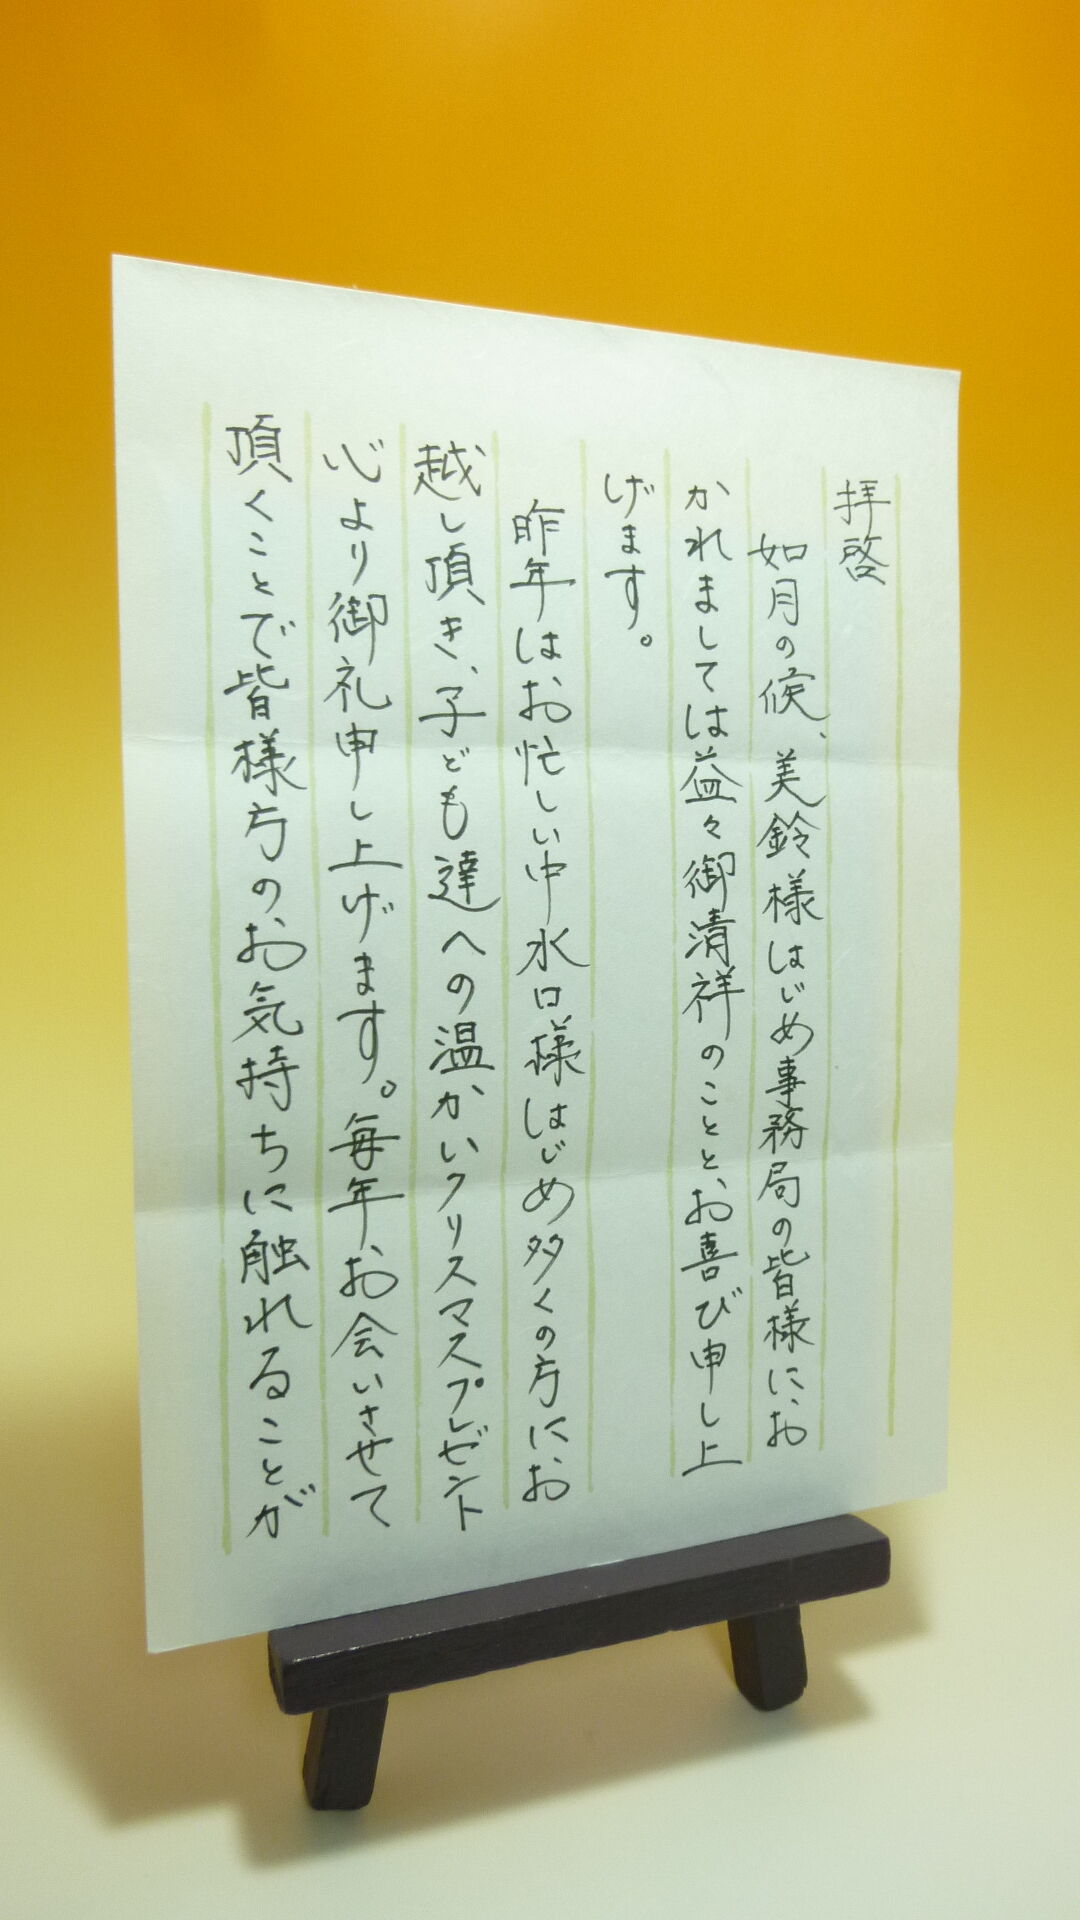 拝啓
如月の候、美鈴様はじめ事務局の皆様にお
かれましては益々御清祥のことと、お喜び申し上
げます。
昨年はお忙しい中水口様はじめ多くの方にお
越し頂き、子ども達への温かいクリスマスプレゼント
心より御礼申し上げます。毎年、お会いさせて
頂くことで皆様方のお気持ちに触れることが